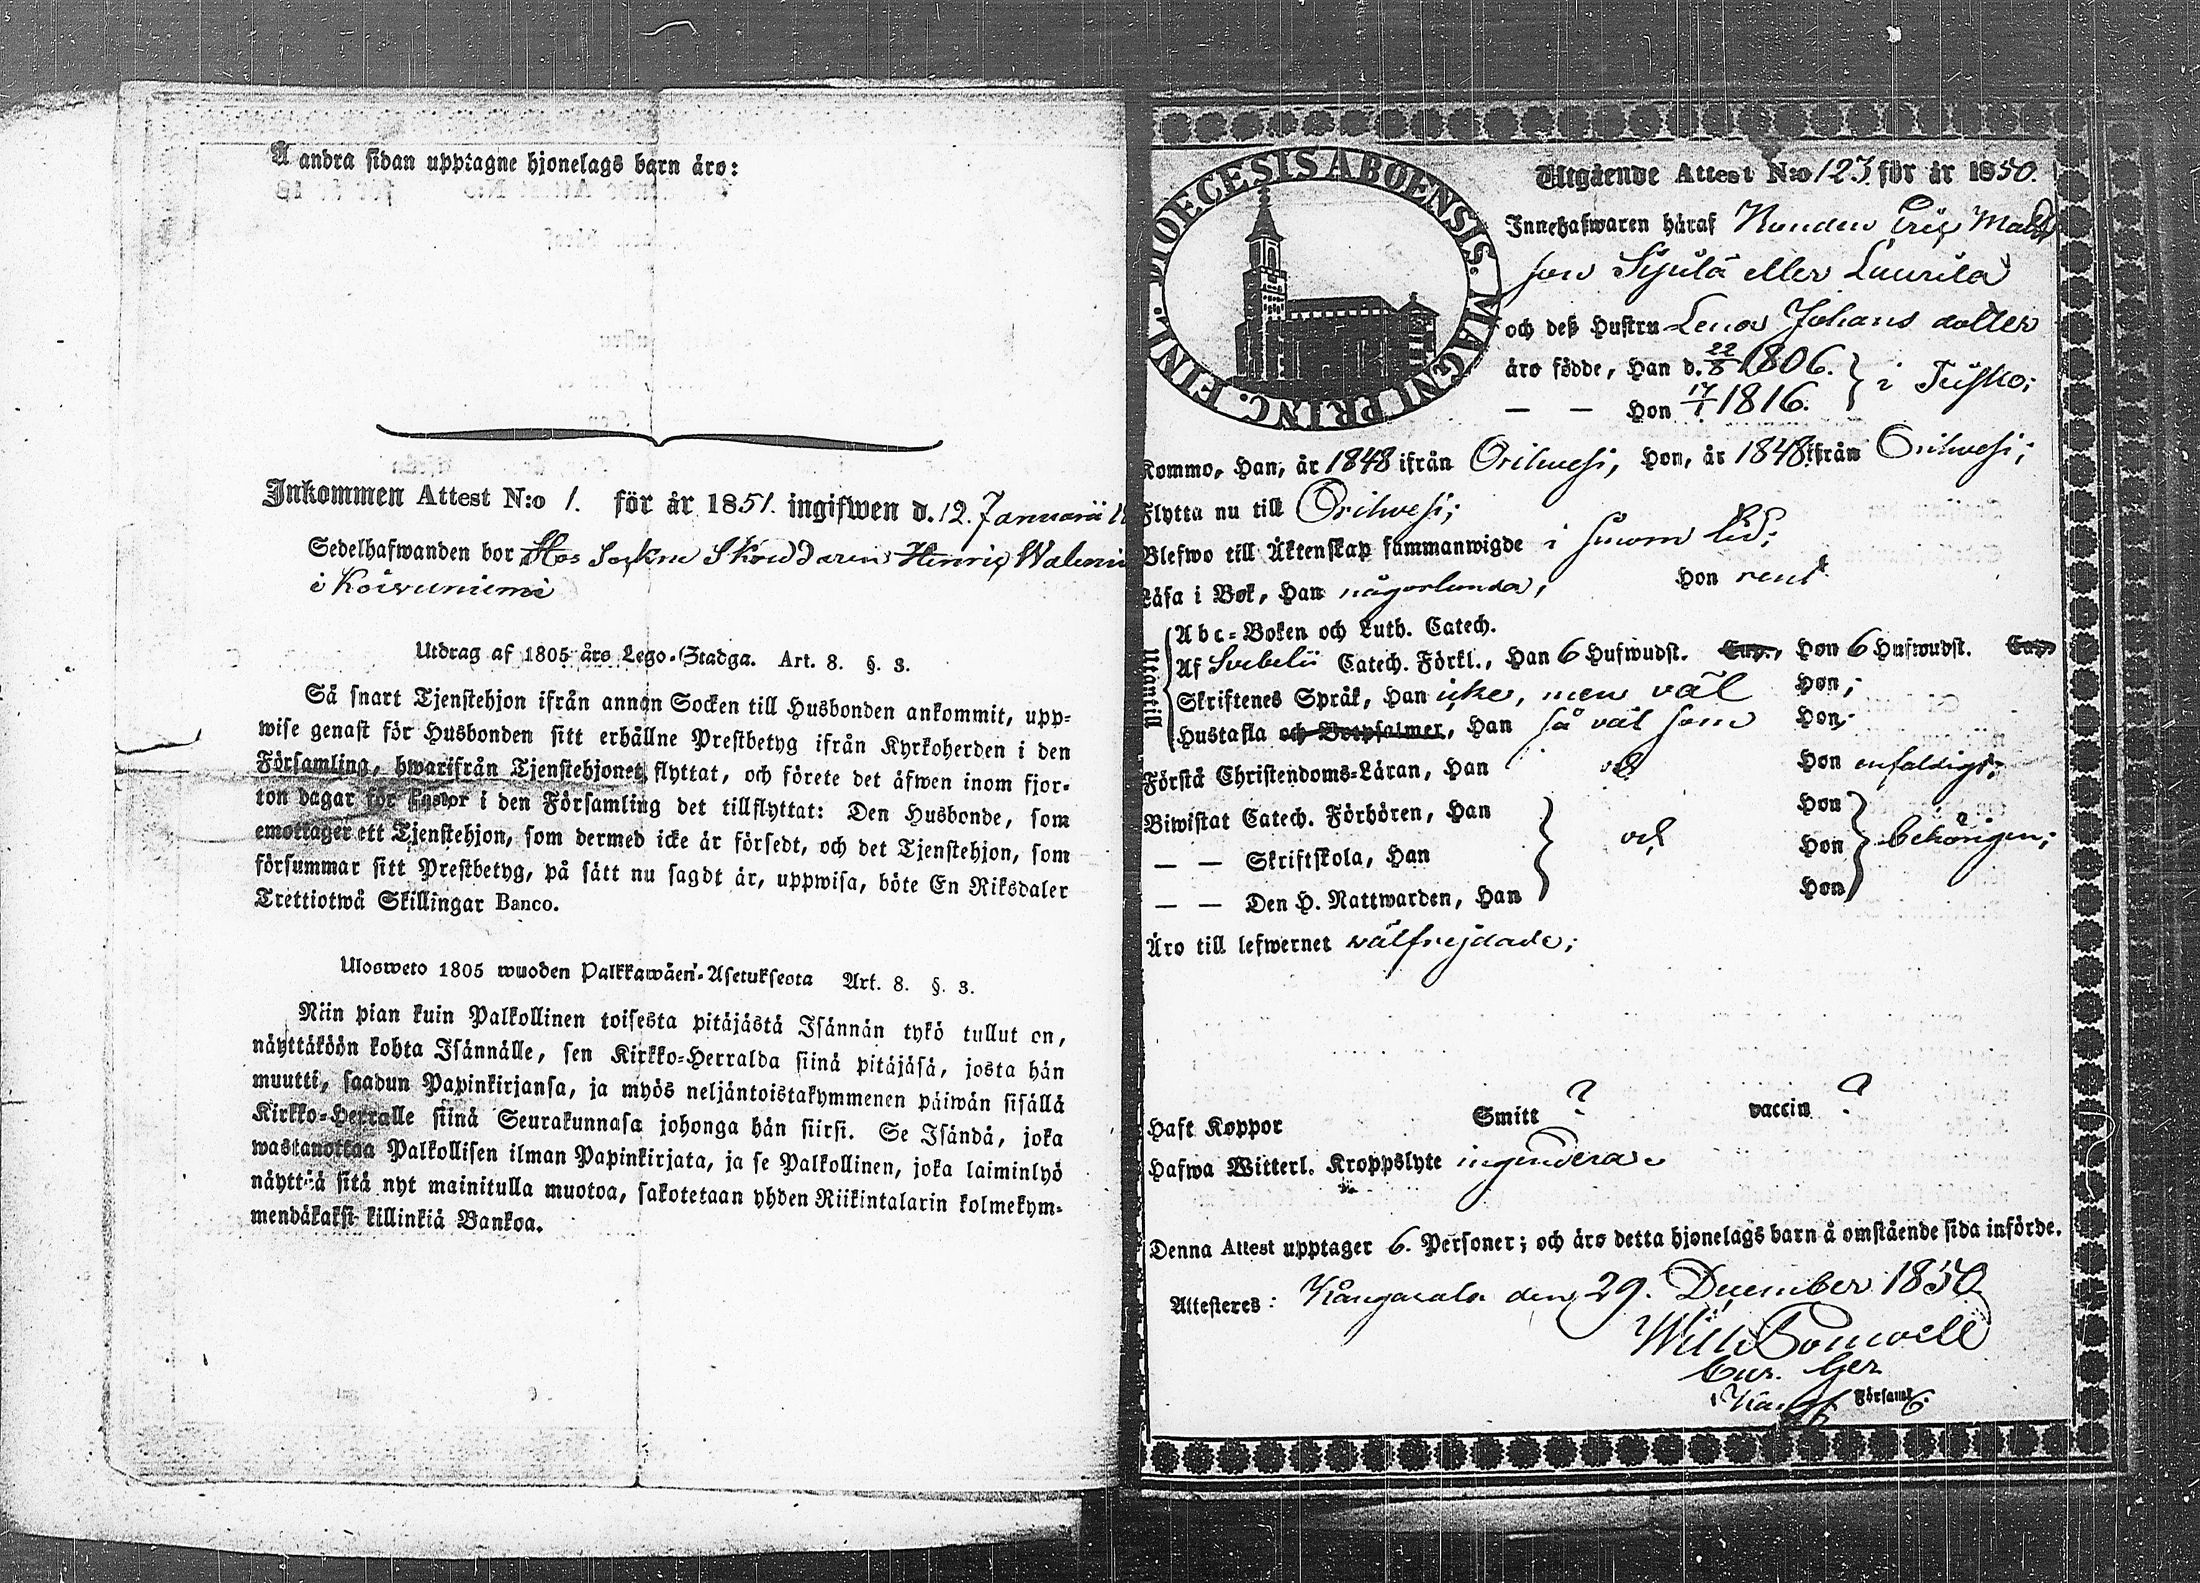 Å andra sidan upptagne hjonelags barn äro:
Inkommen Attest N:o 1. för år 1851. ingifwen d. 12. Januarii
Sedelhafwanden bor Hos Sockne Skräddaren Henric
i Koivuniemi
Utdrag af 1805 års Lego-Stadga. Art. 8. §. 3.
Så snart Tjenstehjon ifrån annan Socken till Husbonden ankommit, upp-
wise genast för Husbonden sitt erhållne Prestbetyg ifrån Kyrkoherden i den
Församling, hwarifrån Tjenstehjonet flyttat, och förete det äfwen inom fjor-
ton dagar för Pastor i den Församling det tillflyttat: Den Husbonde, som
emottager ett Tjenstehjon, som dermed icke är försedt, och det Tjenstehjon, som
försummar sitt Prestbetyg, på sätt nu sagdt är, uppwisa, böte En Riksdaler
Trettiotwå Skillingar Banco.
Ulosweto 1805 wuoden Palkkawäen-Asetuksesta Art. 8. §. 3.
Niin pian kuin Palkollinen toisesta pitäjästä Isännän tykö tullut on,
näyttäköön kohta Isännälle, sen Kirkko-Herralda siinä pitäjäsä, josta hän
muutti, saadun Papinkirjansa, ja myös neljäntoistakymmenen päiwän sisällä
Kirkko-Herralle siinä Seurakunnasa johonga hän siirsi. Se Isändä, joka
wastanottaa Palkollisen ilman Papinkirjata, ja se Palkollinen, joka laiminlyö
näyttää sitä nyt mainitulla muotoa, sakotetaan yhden Riikintalarin kolmekym-
mendäkaksi killinkiä Bankoa.
DIOECESIS ABOENSIS. MAGNI PRINC. FINL.
Utgående Attest N:o 123. för år 1850.
Innehafwaren häraf Bonden Eric Matts
son Sipilä eller Laurila
och deß Hustru Lena Johans dotter
äro födde, Han d. 22/8 1806. } i
— — Hon 17/1 1816.
Kommo, Han, år 1848 ifrån Orihvesi, Hon, år 1848 ifrån Orihvesi;
Flytta nu till Orihvesi;
Blefwo till Äktenskap sammanwigde i sinom tid;
Läsa i Bok, Han någorlunda, Hon rent
Utantill
Abc-Boken och Luth. Catech.
Af Svebelii Catech. Förkl., Han 6 Hufwudst. Cap., Hon 6 Hufwudst. Cap.
Skriftenes Språk, Han icke, men väl Hon;
Hustafla och Botpsalmer, Han så väl som Hon;
Förstå Christendoms-Läran, Han och Hon enfaldigt;
Biwistat Catech. Förhören, Han Hon
— — Skriftskola, Han } och Hon } behörigen;
— — Den H. Nattwarden, Han Hon
Äro till lefwernet wälfrejdade;
Haft Koppor Smitt ? vaccin ?
Hafwa Witterl. Kroppslyte ingendera.
Denna Attest upptager 6. Personer; och äro detta hjonelags barn å omstående sida införde.
Attesteras: Kångasala den 29. December 1850
Wilh.
Cur. Ger
i Församl.